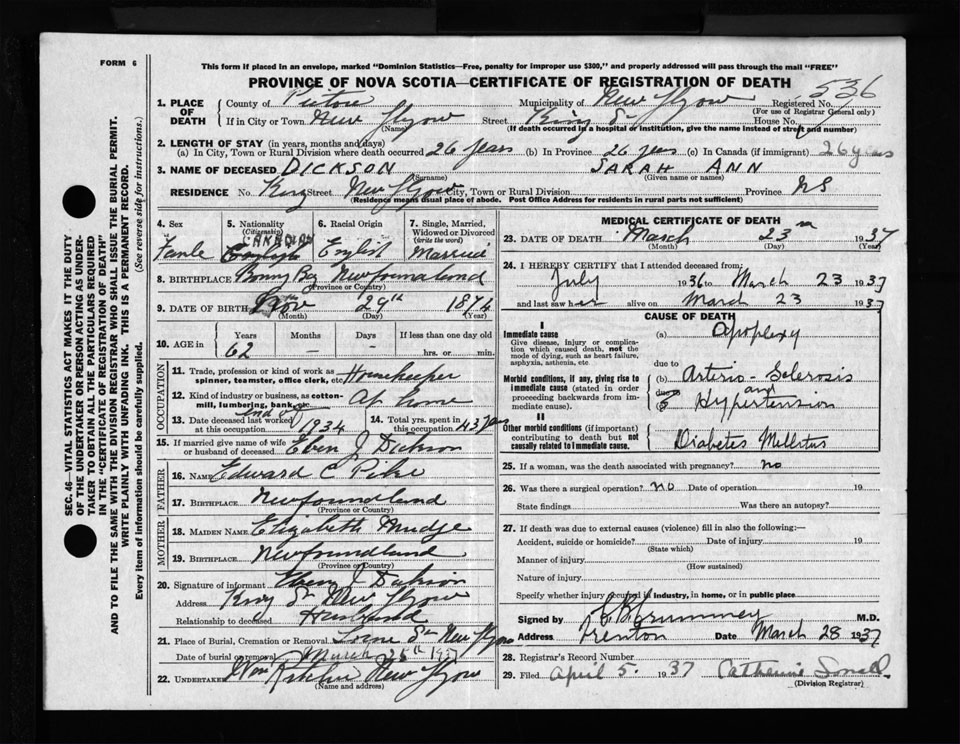 FORM 6
This form if placed in an envelope, marked "Dominion Statistics—Free, penalty for improper use $300," and properly addressed will pass through the mail "FREE"
PROVINCE OF NOVA SCOTIA—CERTIFICATE OF REGISTRATION OF DEATH
536
1. PLACE OF DEATH County of Pictou Municipality of New Glasgow Registered No.
(For use of Registrar General only)
If in City or Town New Glasgow Street King St House No.
(Name) (If death occurred in a hospital or institution, give the name instead of street and number)
2. LENGTH OF STAY (in years, months and days)
(a) In City, Town or Rural Division where death occurred 26 years (b) In Province 26 years (c) In Canada (if immigrant) 26 years
3. NAME OF DECEASED DICKSON SARAH ANN
(Surname) (Given name or names)
RESIDENCE No. King Street New Glasgow City, Town or Rural Division Province NS
(Residence means usual place of abode. Post Office Address for residents in rural parts not sufficient)
SEC. 46—VITAL STATISTICS ACT MAKES IT THE DUTY
OF THE UNDERTAKER OR PERSON ACTING AS UNDER-
TAKER TO OBTAIN ALL THE PARTICULARS REQUIRED
IN THE "CERTIFICATE OF REGISTRATION OF DEATH"
AND TO FILE THE SAME WITH THE DIVISION REGISTRAR WHO SHALL ISSUE THE BURIAL PERMIT.
WRITE PLAINLY WITH UNFADING INK. THIS IS A PERMANENT RECORD.
Every item of information should be carefully supplied. (See reverse side for instructions.)
4. Sex 5. Nationality (Citizenship) 6. Racial Origin 7. Single, Married, Widowed or Divorced (Write the word)
CANADIAN
English English Married
8. BIRTHPLACE Bonny Bay Newfoundland
(Province or Country)
9. DATE OF BIRTH Nov 29th 1874
(Month) (Day) (Year)
10. AGE in Years Months Days If less than one day old
62 – – hrs. or min.
OCCUPATION
11. Trade, profession or kind of work as spinner, teamster, office clerk, etc. Housekeeper
12. Kind of industry or business, as cotton-mill, lumbering, bank, etc. At home
13. Date deceased last worked at this occupation 1934
14. Total yrs. spent in this occupation 43 years
15. If married give name of wife or husband of deceased Eben J Dickson
FATHER
16. Name Edward C Pike
17. Birthplace Newfoundland
(Province or Country)
MOTHER
18. Maiden Name Elizabeth Mudge
19. Birthplace Newfoundland
(Province or Country)
20. Signature of informant Eben J Dickson
Address King St New Glasgow
Relationship to deceased Husband
21. Place of Burial, Cremation or Removal Lorne St New Glasgow
Date of burial or removal March 25th 1937
22. UNDERTAKER Wm Ritchie New Glasgow
(Name and address)
MEDICAL CERTIFICATE OF DEATH
23. DATE OF DEATH March 23 1937
(Month) (Day) (Year)
24. I HEREBY CERTIFY that I attended deceased from:
July 1936 to March 23 1937
and last saw her alive on March 23 1937
CAUSE OF DEATH
I
Immediate cause (a) Apoplexy
Give disease, injury or complication which caused death, not the mode of dying, such as heart failure, asphyxia, asthenia, etc
due to
Morbid conditions, if any, giving rise to immediate cause (stated in order proceeding backwards from immediate cause). (b) Arterio-Sclerosis
and
due to
Hypertension
II
Other morbid conditions (if important) contributing to death but not causally related to immediate cause. Diabetes Mellitus
25. If a woman, was the death associated with pregnancy? no
26. Was there a surgical operation? no Date of operation 19
State findings Was there an autopsy?
27. If death was due to external causes (violence) fill in also the following:—
Accident, suicide or homicide? Date of injury 19
(State which)
Manner of injury
(How sustained)
Nature of injury
Specify whether injury occurred in industry, in home, or in public place
Signed by Crummey M.D.
Address Trenton Date March 28 1937
28. Registrar's Record Number
29. Filed April 5 1937 Catherine
(Division Registrar)